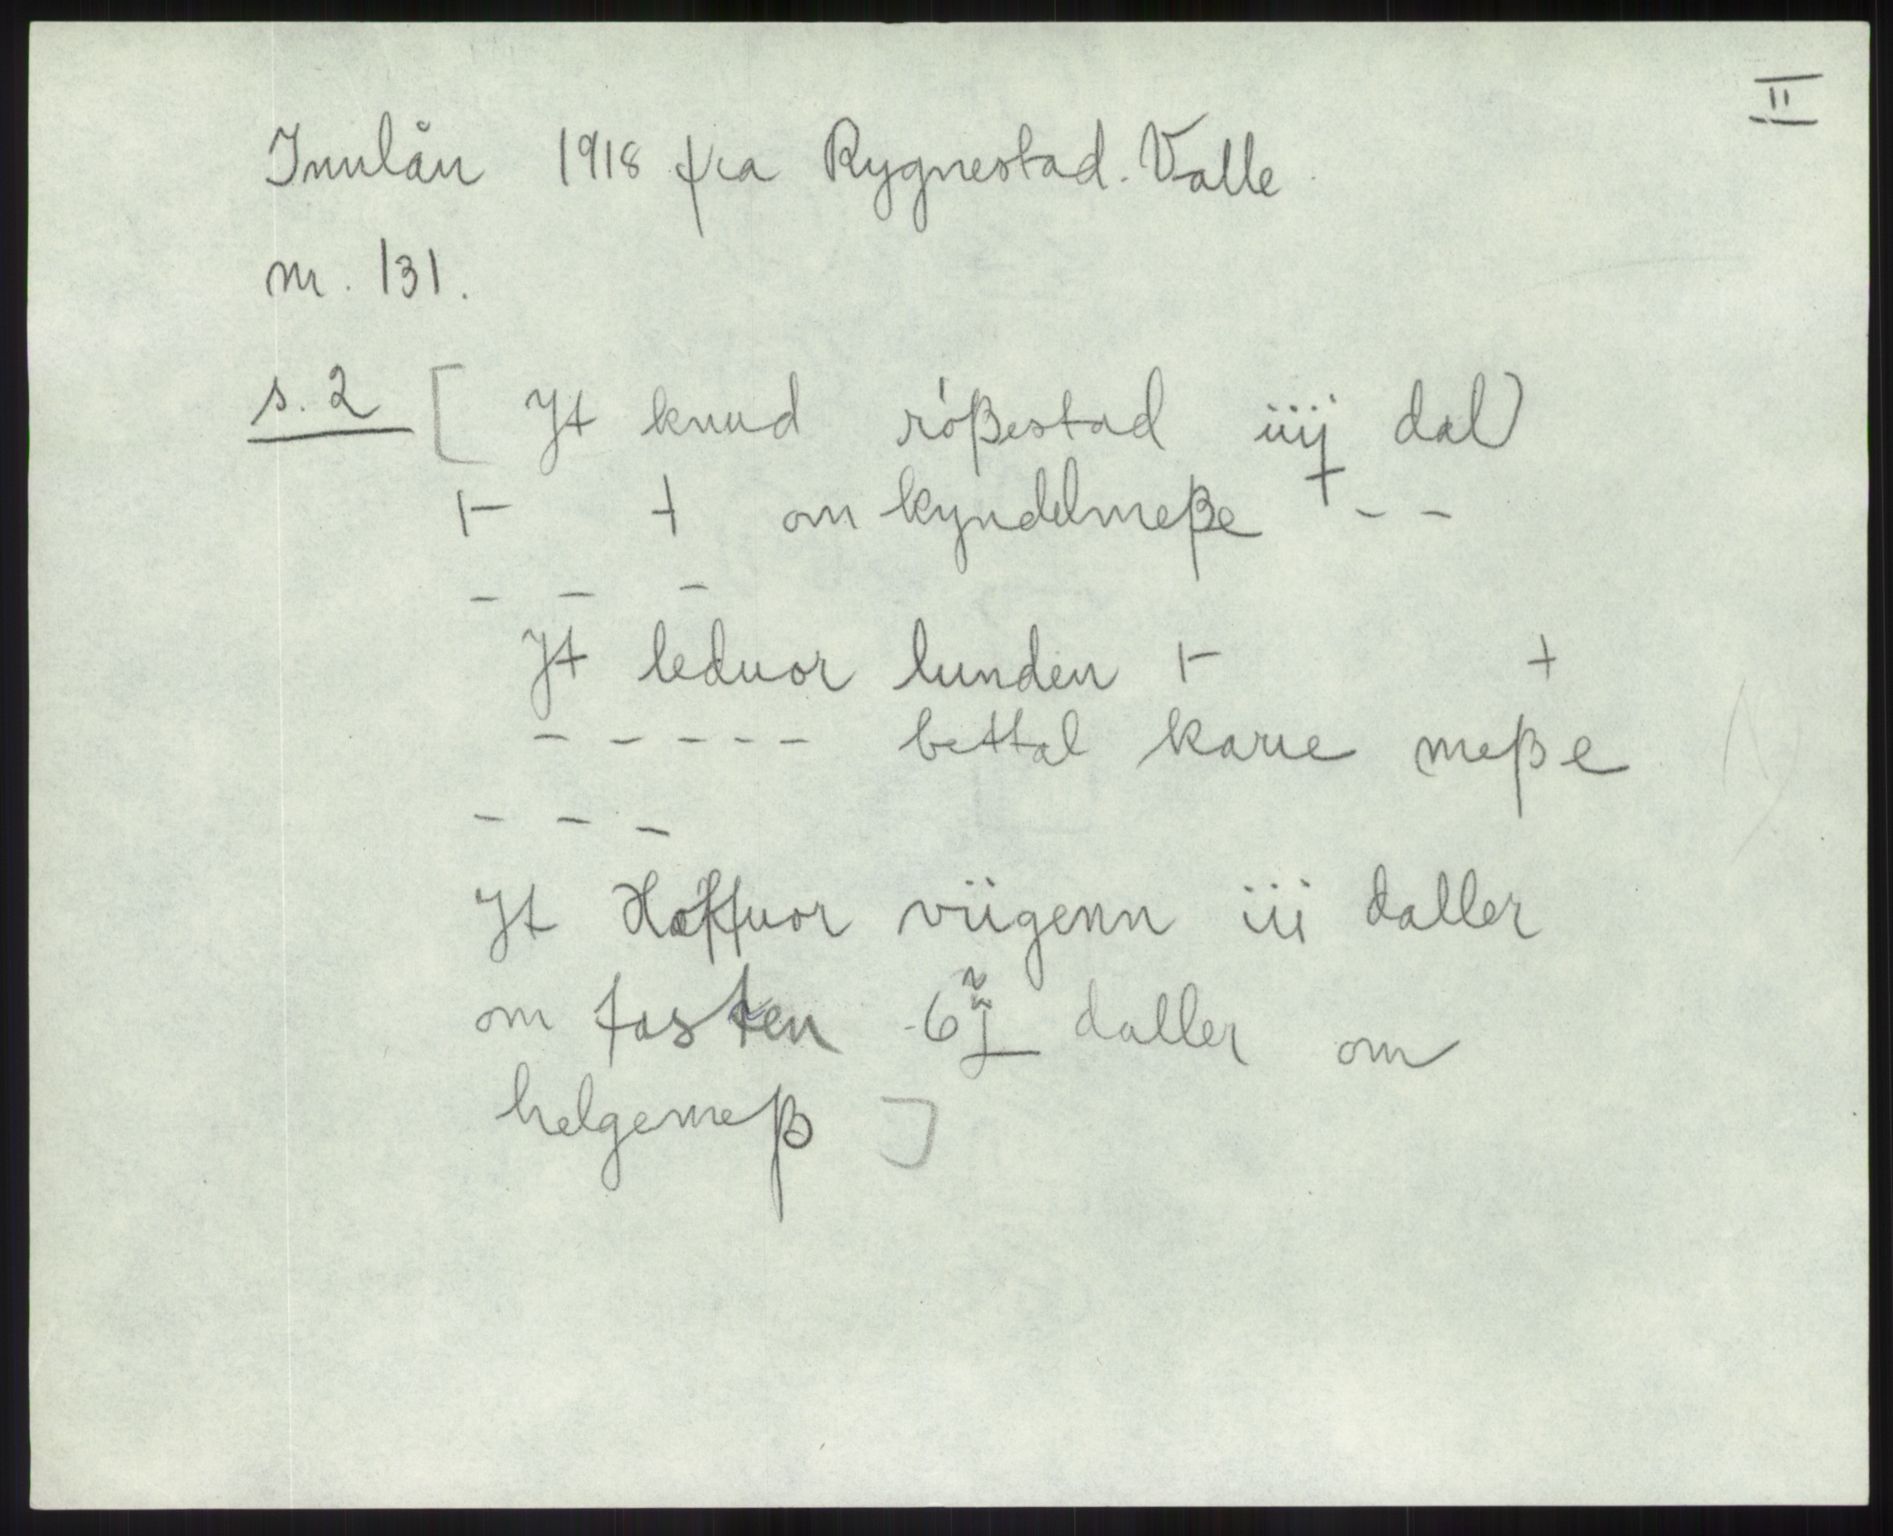 II
Innlån 1918 fra Rygnestad. Valle
nr. 131.
s. 2 [ Jt knud rößestad iiij dal
⊢ + om kyndelmeße + - -
- - -
Jt leduor lunden ⊢ +
- - - - - bettal karie meße
- - -
Jt Hoffuor viigenn iii daller
om fasten 6 daller om
helgemeß ]